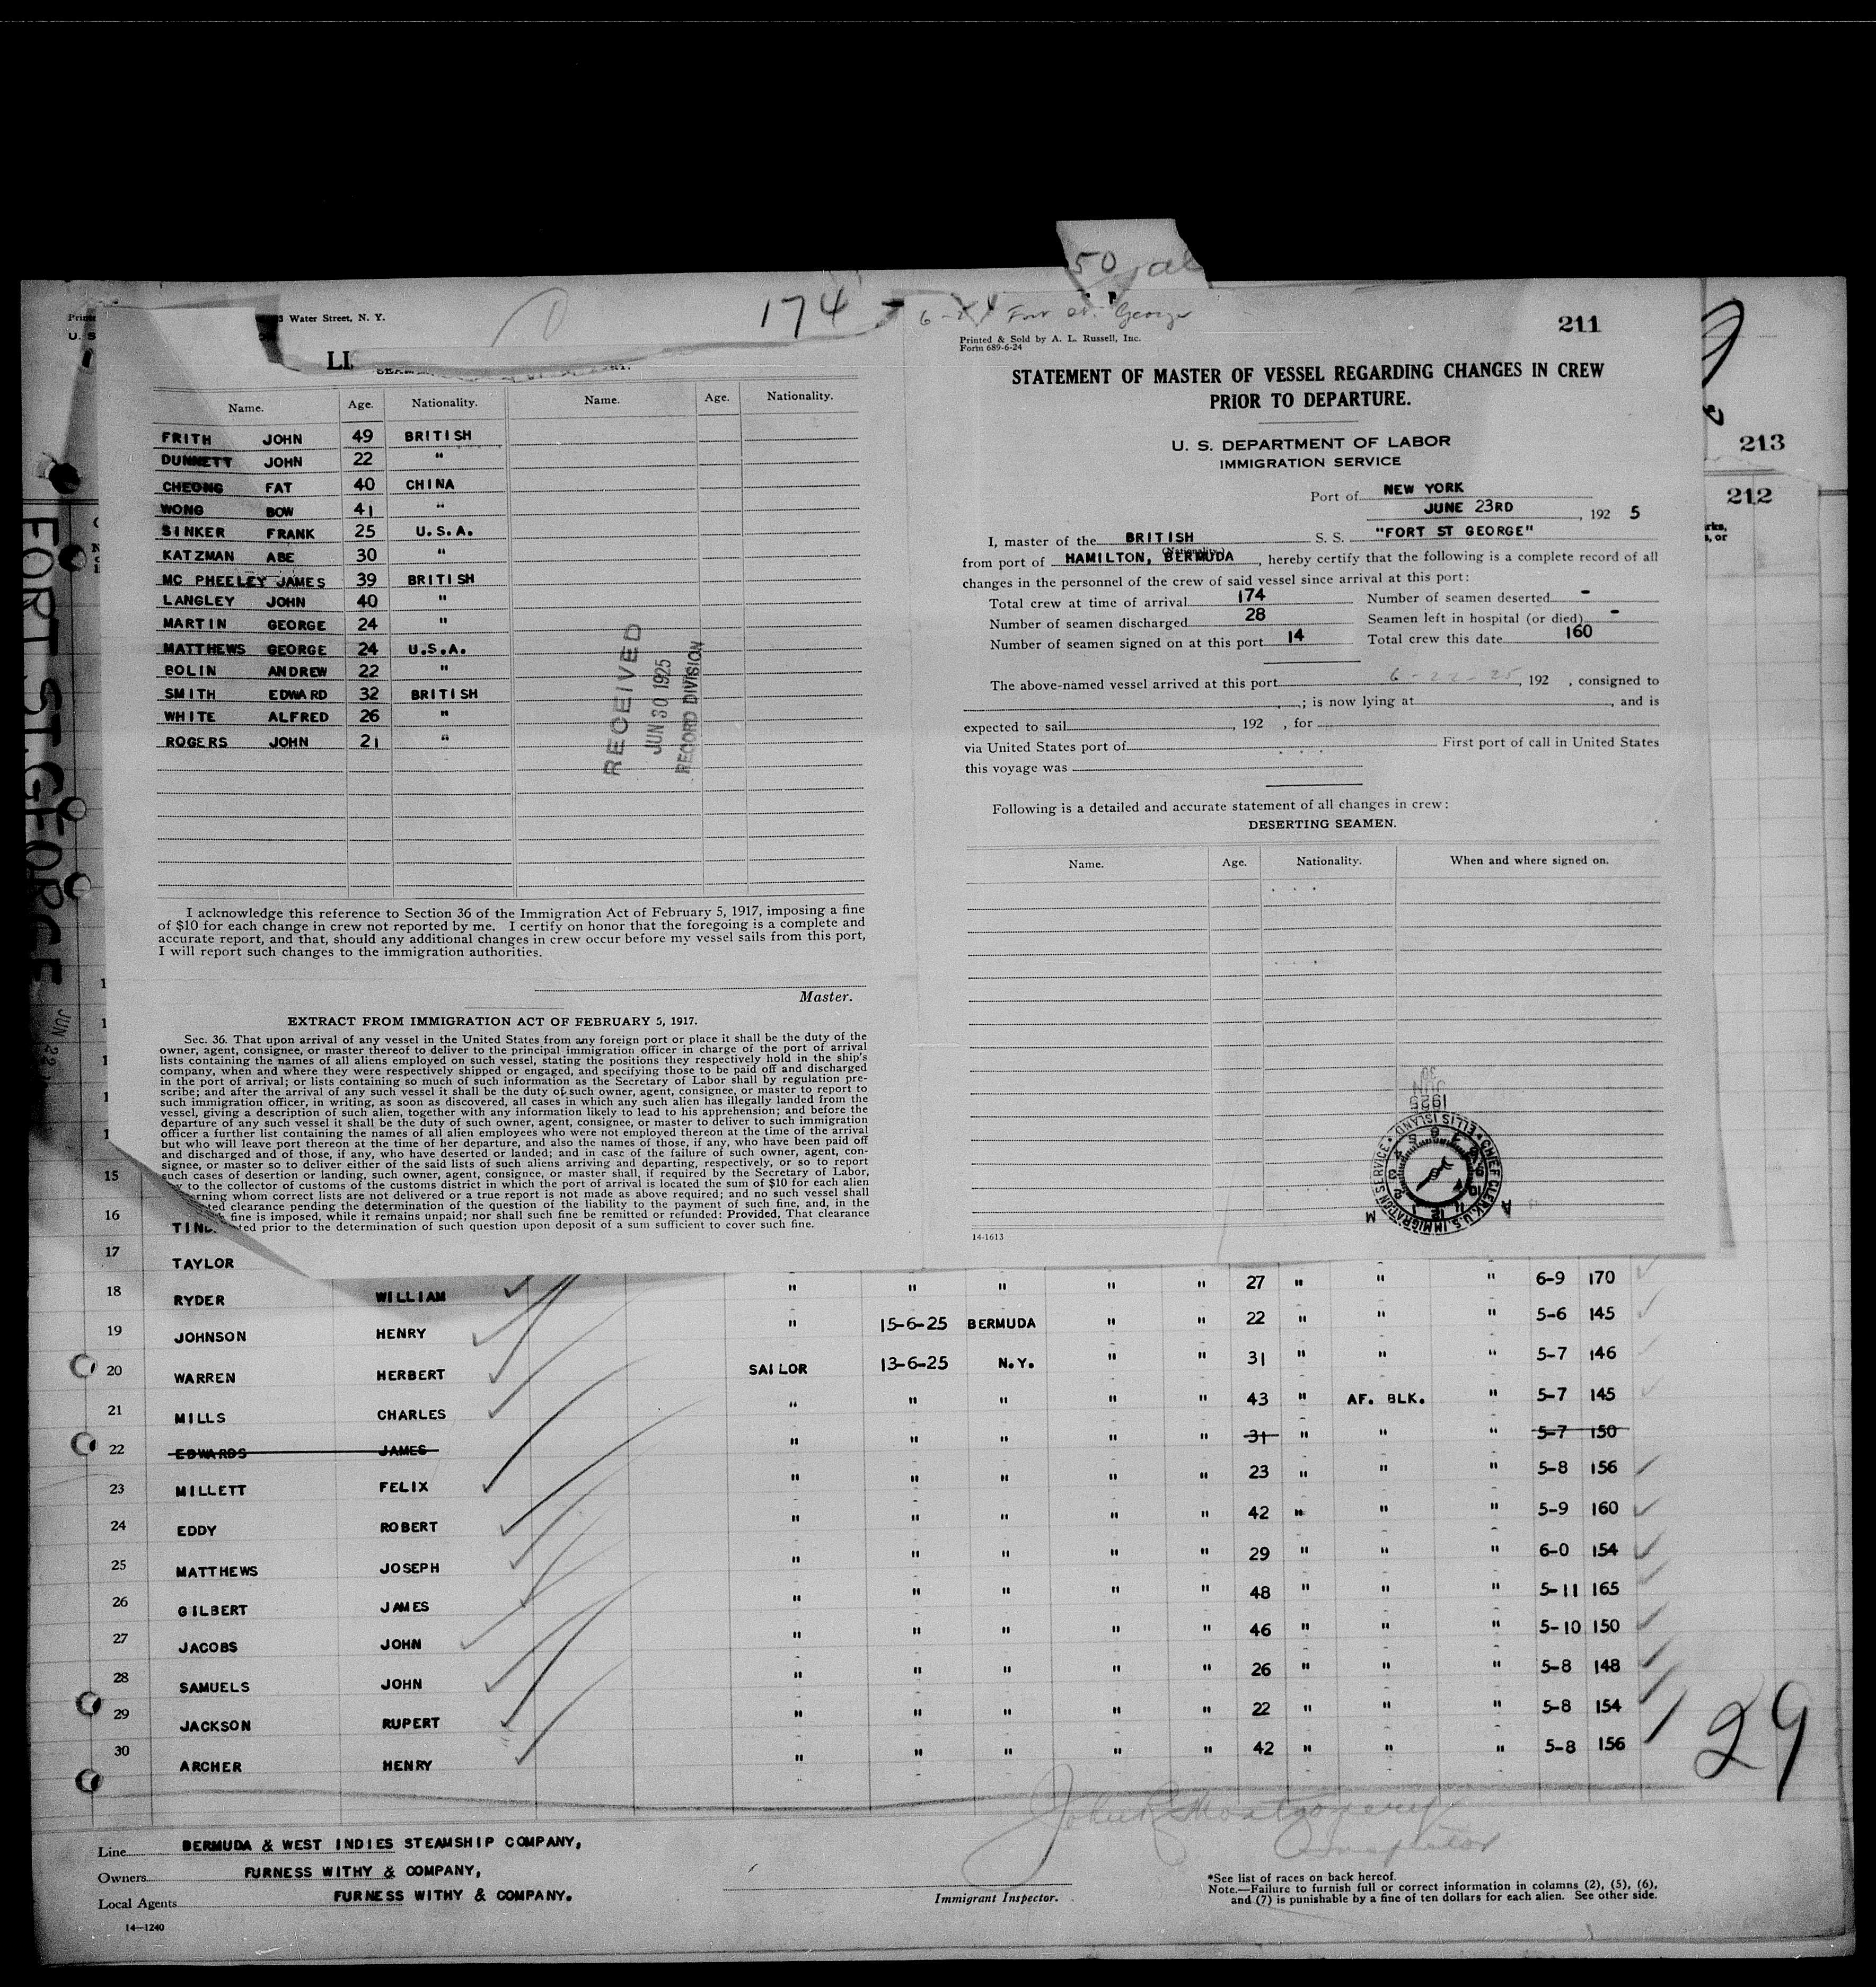 50
174
6-24 Fort St. George
3 Water Street, N. Y.
U. S
LI
Name. Age. Nationality. Name. Age. Nationality.
FRITH JOHN 49 BRITISH
DUNNETT JOHN 22 "
CHEONG FAT 40 CHINA
WONG BOW 41 "
SINKER FRANK 25 U.S.A.
KATZMAN ABE 30 "
MC PHEELEY JAMES 39 BRITISH
LANGLEY JOHN 40 "
MARTIN GEORGE 24 "
MATTHEWS GEORGE 24 U.S.A.
BOLIN ANDREW 22 "
SMITH EDWARD 32 BRITISH
WHITE ALFRED 26 "
ROGERS JOHN 21 "
RECEIVED
JUN 30 1925
RECORD DIVISION
I acknowledge this reference to Section 36 of the Immigration Act of February 5, 1917, imposing a fine
of $10 for each change in crew not reported by me. I certify on honor that the foregoing is a complete and
accurate report, and that, should any additional changes in crew occur before my vessel sails from this port,
I will report such changes to the immigration authorities.
Master.
EXTRACT FROM IMMIGRATION ACT OF FEBRUARY 5, 1917.
Sec. 36. That upon arrival of any vessel in the United States from any foreign port or place it shall be the duty of the
owner, agent, consignee, or master thereof to deliver to the principal immigration officer in charge of the port of arrival
lists containing the names of all aliens employed on such vessel, stating the positions they respectively hold in the ship's
company, when and where they were respectively shipped or engaged, and specifying those to be paid off and discharged
in the port of arrival; or lists containing so much of such information as the Secretary of Labor shall by regulation pre-
scribe; and after the arrival of any such vessel it shall be the duty of such owner, agent, consignee, or master to report to
such immigration officer, in writing, as soon as discovered, all cases in which any such alien has illegally landed from the
vessel, giving a description of such alien, together with any information likely to lead to his apprehension; and before the
departure of any such vessel it shall be the duty of such owner, agent, consignee, or master to deliver to such immigration
officer a further list containing the names of all alien employees who were not employed thereon at the time of the arrival
but who will leave port thereon at the time of her departure, and also the names of those, if any, who have been paid off
and discharged and of those, if any, who have deserted or landed; and in case of the failure of such owner, agent, con-
signee, or master so to deliver either of the said lists of such aliens arriving and departing, respectively, or so to report
such cases of desertion or landing, such owner, agent, consignee, or master shall, if required by the Secretary of Labor,
to the collector of customs of the customs district in which the port of arrival is located the sum of $10 for each alien
whom correct lists are not delivered or a true report is not made as above required; and no such vessel shall
clearance pending the determination of the question of the liability to the payment of such fine, and, in the
fine is imposed, while it remains unpaid; nor shall such fine be remitted or refunded: Provided, That clearance
prior to the determination of such question upon deposit of a sum sufficient to cover such fine.
211
Printed & Sold by A. L. Russell, Inc.
Form 689-6-24
STATEMENT OF MASTER OF VESSEL REGARDING CHANGES IN CREW
PRIOR TO DEPARTURE.
U. S. DEPARTMENT OF LABOR
IMMIGRATION SERVICE
Port of NEW YORK
JUNE 23RD, 192 5
I, master of the BRITISH S. S. "FORT ST GEORGE"
(Nationality)
from port of HAMILTON, BERMUDA, hereby certify that the following is a complete record of all
changes in the personnel of the crew of said vessel since arrival at this port:
Total crew at time of arrival 174 Number of seamen deserted -
Number of seamen discharged 28 Seamen left in hospital (or died) -
Number of seamen signed on at this port 14 Total crew this date 160
The above-named vessel arrived at this port 6-22-25, 192 , consigned to
; is now lying at , and is
expected to sail , 192 , for
via United States port of First port of call in United States
this voyage was
Following is a detailed and accurate statement of all changes in crew:
DESERTING SEAMEN.
Name. Age. Nationality. When and where signed on.
JUN 30 1925
CHIEF CLERK, U.S. IMMIGRATION SERVICE ELLIS ISLAND
A M
14-1613
213
212
FORT ST. GEORGE
JUN 22
15
16
17 TAYLOR
18 RYDER WILLIAM " " " " " 27 " " " 6-9 170
19 JOHNSON HENRY " 15-6-25 BERMUDA " " 22 " " " 5-6 145
20 WARREN HERBERT SAILOR 13-6-25 N.Y. " " 31 " " " 5-7 146
21 MILLS CHARLES " " " " " 43 " AF. BLK. " 5-7 145
22 EDWARDS JAMES " " " " " 31 " " " 5-7 150
23 MILLETT FELIX " " " " " 23 " " " 5-8 156
24 EDDY ROBERT " " " " " 42 " " " 5-9 160
25 MATTHEWS JOSEPH " " " " " 29 " " " 6-0 154
26 GILBERT JAMES " " " " " 48 " " " 5-11 165
27 JACOBS JOHN " " " " " 46 " " " 5-10 150
28 SAMUELS JOHN " " " " " 26 " " " 5-8 148
29 JACKSON RUPERT " " " " " 22 " " " 5-8 154
30 ARCHER HENRY " " " " " 42 " " " 5-8 156
29
John Montgomery
Inspector
Line BERMUDA & WEST INDIES STEAMSHIP COMPANY,
Owners FURNESS WITHY & COMPANY,
Local Agents FURNESS WITHY & COMPANY.
14-1240
Immigrant Inspector.
*See list of races on back hereof.
Note.—Failure to furnish full or correct information in columns (2), (5), (6),
and (7) is punishable by a fine of ten dollars for each alien. See other side.